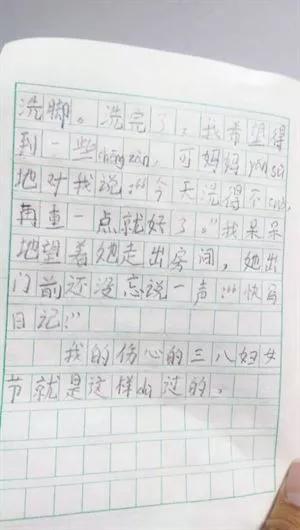 洗脚。洗完了，我希望得
到一些chēng zàn，可妈妈yán sù
地对我说：“今天洗得不cuò，
再重一点就好了。”我呆呆
地望着她走出房间，她出
门前还没忘说一声：“快写
日记！”
我的伤心的三八妇女
节就是这样dù过的。